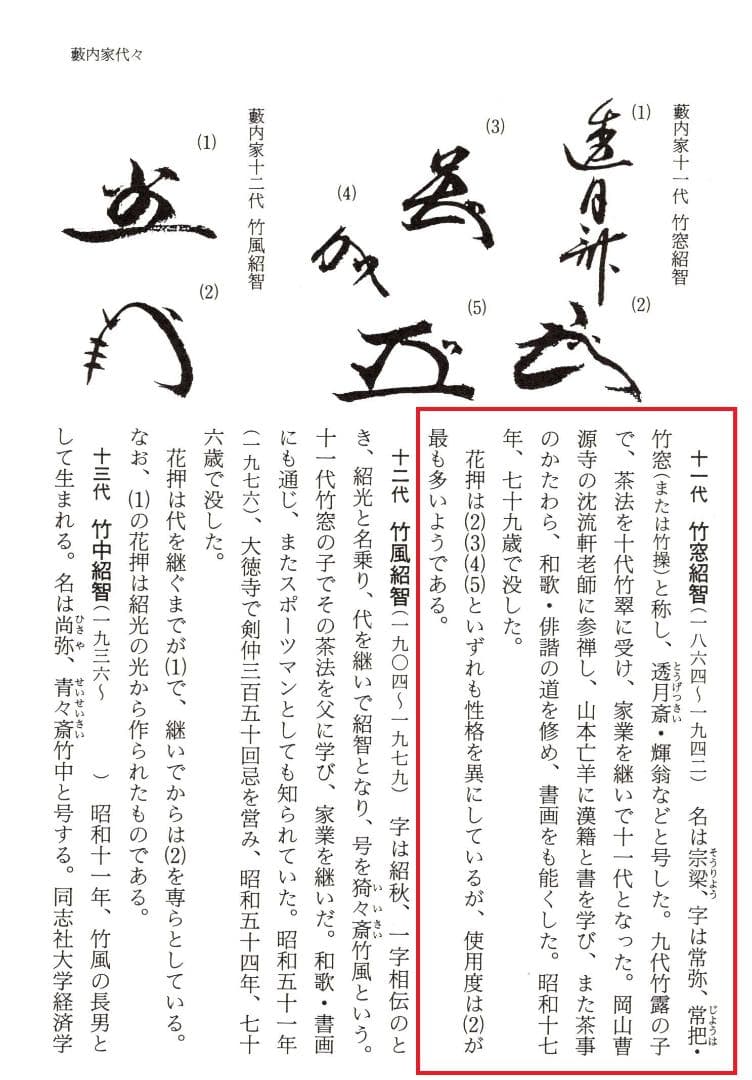 藪内家代々
藪内家十一代 竹窓紹智
(1)
(2)
(3)
(4)
(5)
藪内家十二代 竹風紹智
(1)
(2)
十一代 竹窓紹智(一八六四〜一九四二) 名は宗梁、字は常弥、常把・
そうりよう
じようは
竹窓(または竹操)と称し、透月斎・輝翁などと号した。九代竹露の子
とうげつさい
で、茶法を十代竹翠に受け、家業を継いで十一代となった。岡山曹
源寺の沈流軒老師に参禅し、山本亡羊に漢籍と書を学び、また茶事
のかたわら、和歌・俳諧の道を修め、書画をも能くした。昭和十七
年、七十九歳で没した。
花押は(2)(3)(4)(5)といずれも性格を異にしているが、使用度は(2)が
最も多いようである。
十二代 竹風紹智(一九〇四〜一九七九) 字は紹秋、一字相伝のと
き、紹光と名乗り、代を継いで紹智となり、号を猗々斎竹風という。
いいさい
十一代竹窓の子でその茶法を父に学び、家業を継いだ。和歌・書画
にも通じ、またスポーツマンとしても知られていた。昭和五十一年
(一九七六)、大徳寺で剣仲三百五十回忌を営み、昭和五十四年、七十
六歳で没した。
花押は代を継ぐまでが(1)で、継いでからは(2)を専らとしている。
なお、(1)の花押は紹光の光から作られたものである。
十三代 竹中紹智(一九三六〜 ) 昭和十一年、竹風の長男と
して生まれる。名は尚弥、青々斎竹中と号する。同志社大学経済学
ひさや
せいせいさい